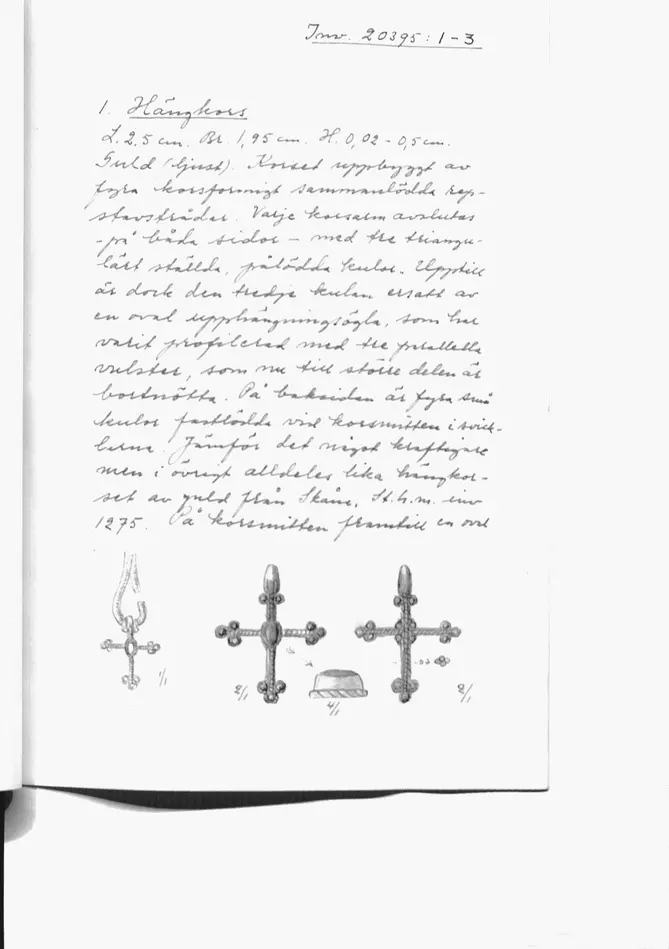 Inv. 20395: 1-3
1. Hängkors
L. 2,5 cm. Br. 1,95 cm. H. 0,02 - 0,5 cm.
Guld (ljust). Korset uppbyggt av
fyra korsformigt sammanlödda rep-
stavstrådar. Varje korsarm avslutas
- på båda sidor - med tre triangu-
lärt ställda, pålödda kulor. Upptill
är dock den tredje kulan ersatt av
en oval upphängningsögla, som har
varit profilerad med tre parallella
vulster, som nu till större delen är
bortnötta. På baksidan är fyra små
kulor fastlödda vid korsmitten i vick-
larna. Jämför det något kraftigare
men i övrigt alldeles lika hängkor-
set av guld från Skåne, St.h.m. inv
1275. På korsmitten framtill en oval
1/1
2/1
4/1
2/1